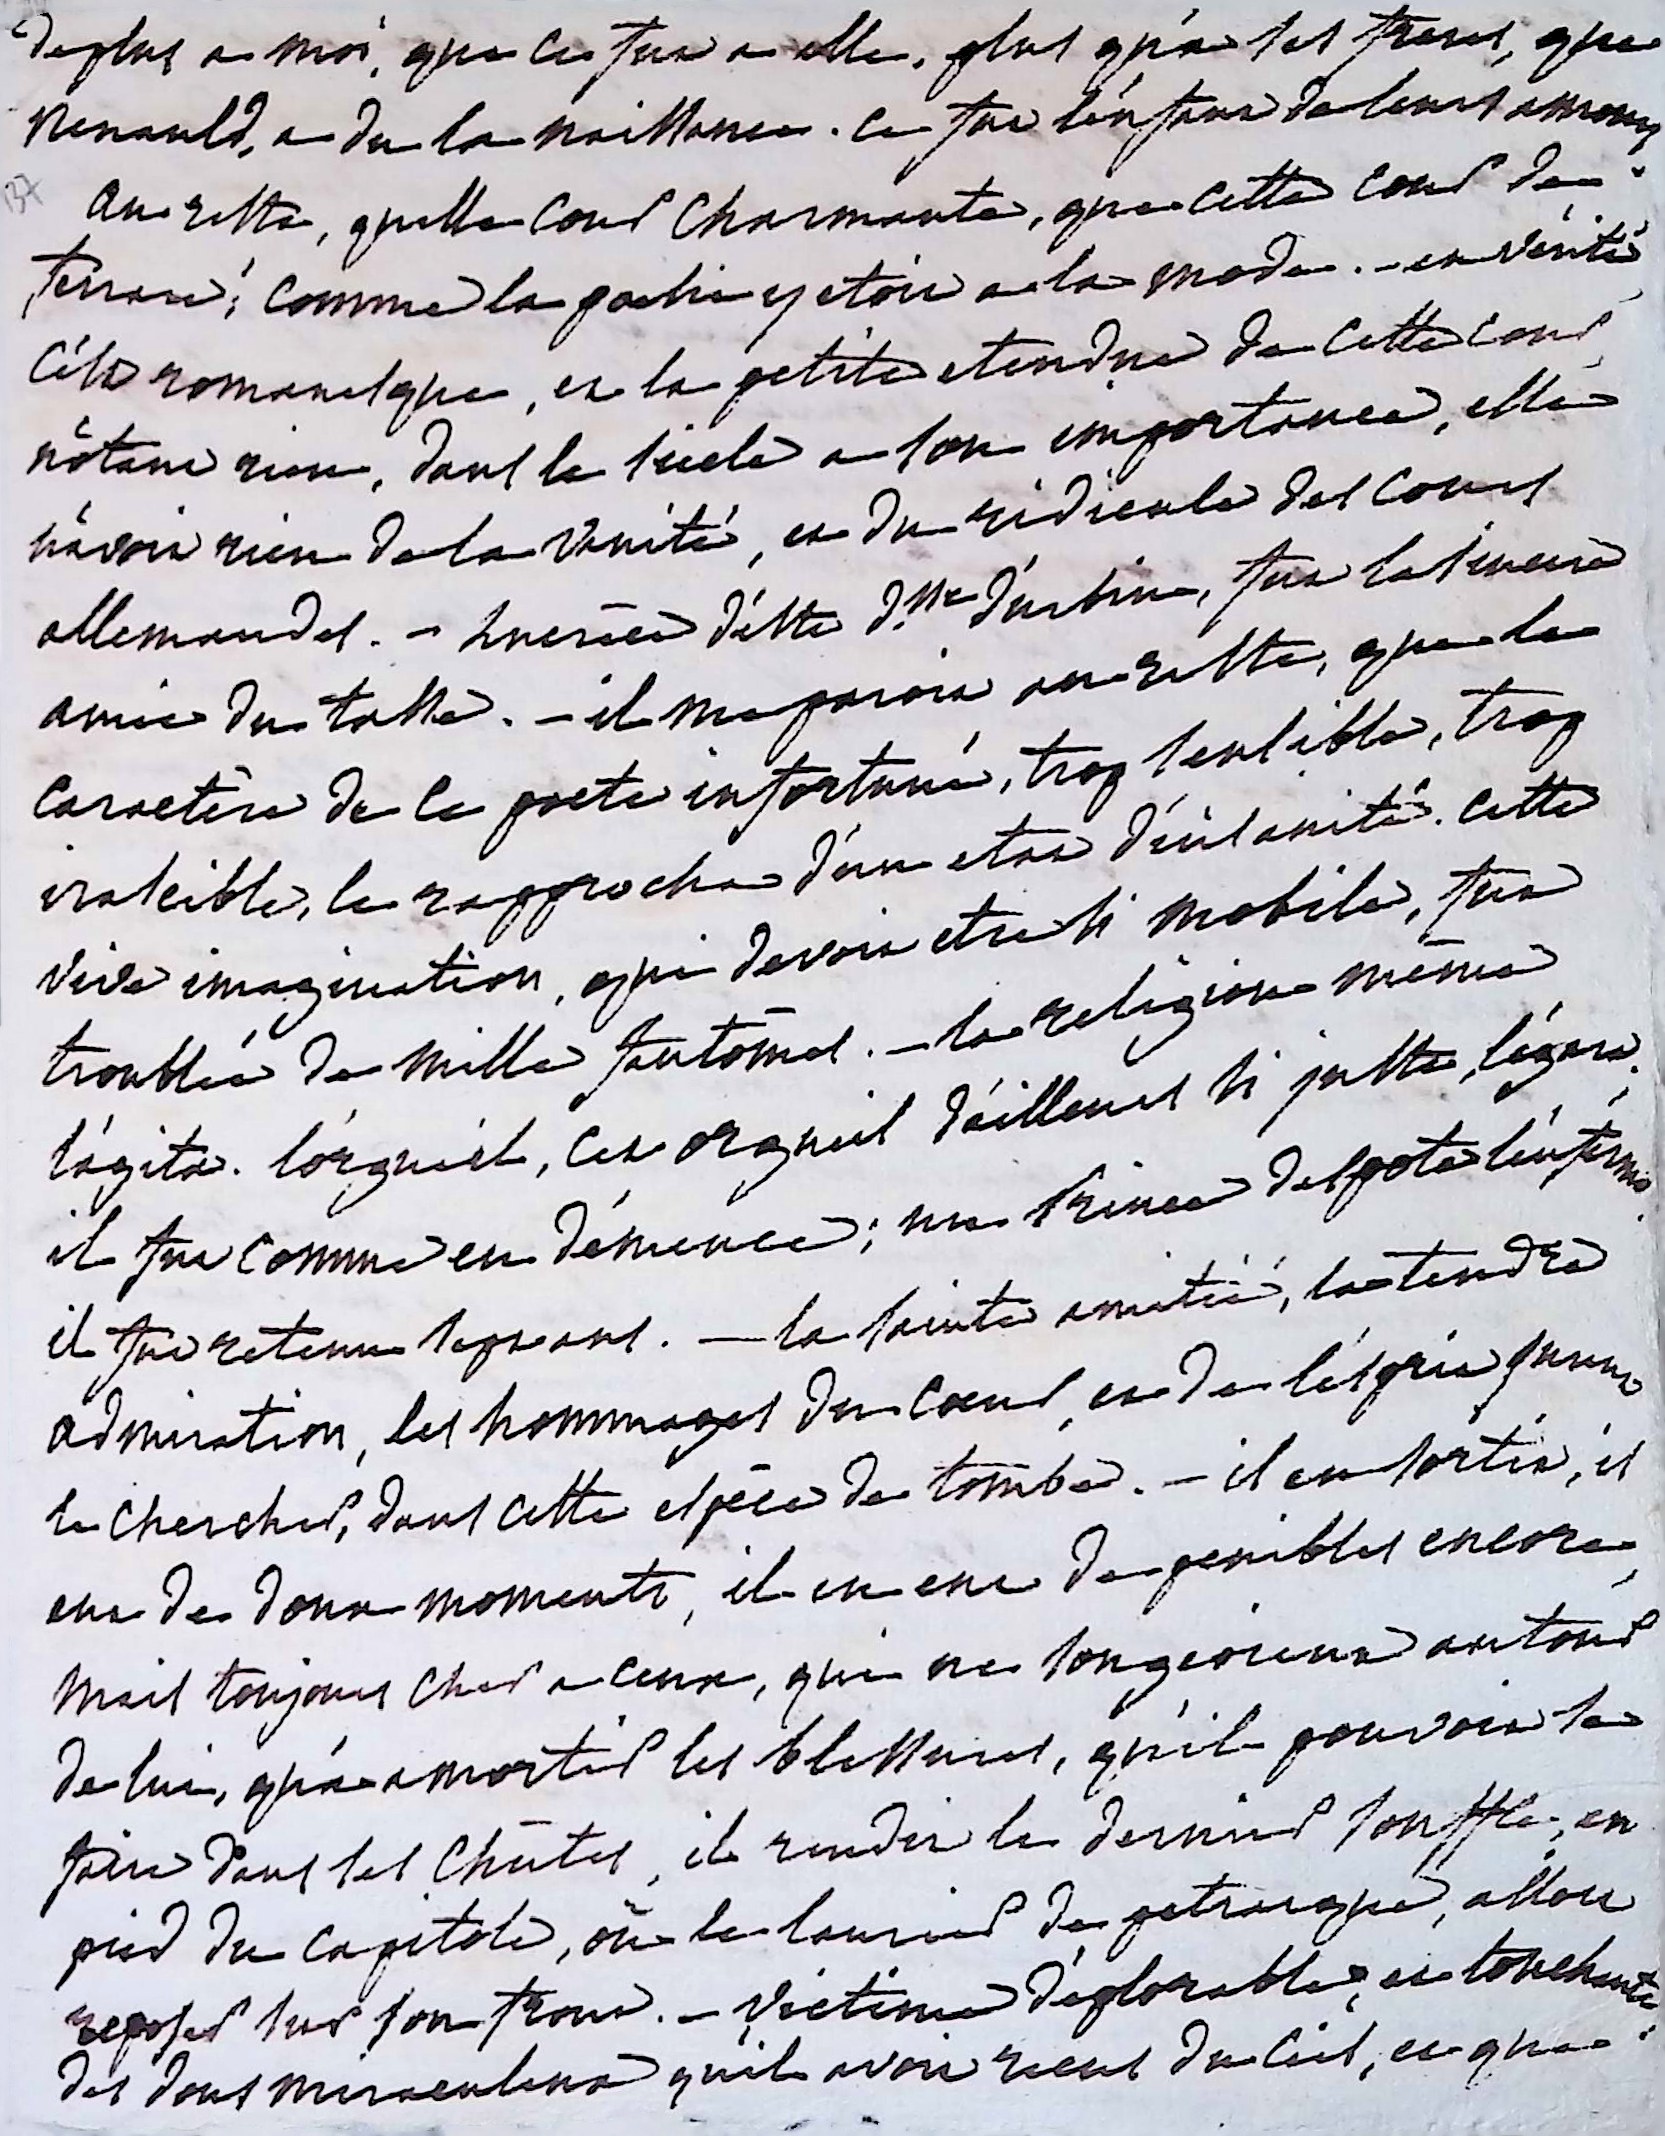 de plus a moi, que ce fut a elle, plus qu'a ses freres, que
Renauld, a du la naissance. ce fut l'enfant de leurs amours
137 au reste, quelle cour charmante, que cette cour de
ferrare! comme la poësie y etoit a la mode. - en vérité
c'est romanesque, et la petite etendue de cette cour
n'ôtant rien, dans le siecle a son importance, elle
n'avoit rien de la vanité, et du ridicule des cours
allemandes. - Lucrèce d'este d.sse d'urbin, fut la sincere
amie du tasse. - il me paroit au reste, que le
caractère de ce poete infortuné, trop sensible, trop
irascible, le rapprocha d'un etat d'insanité. cette
vive imagination, qui devoit etre si mobile, fut
troublée de mille fantômes. - la religion même
l'agita. l'orgueil, cet orgueil d'ailleurs si juste, l'égara.
il fut comme en démence; un Prince despote l'enferma.
il fut retenu sept ans. - la sainte amitié, la tendre
admiration, les hommages du coeur, et de l'esprit furent
le chercher, dans cette espèce de tombe. - il en sortit, il
eut de doux moments, il en eut de penibles encore,
mais toujours cher a ceux, qui ne songeoient autour
de lui, qu'a amortir les blessures, qu'il pouvoit se
faire dans ses chûtes, il rendit le dernier souffle, au
pied du capitole, où le laurier de petrarque, alloit
reposer sur son front. - victime déplorable, et touchante
des dons miraculeux qu'il avoit recus du Ciel, et que